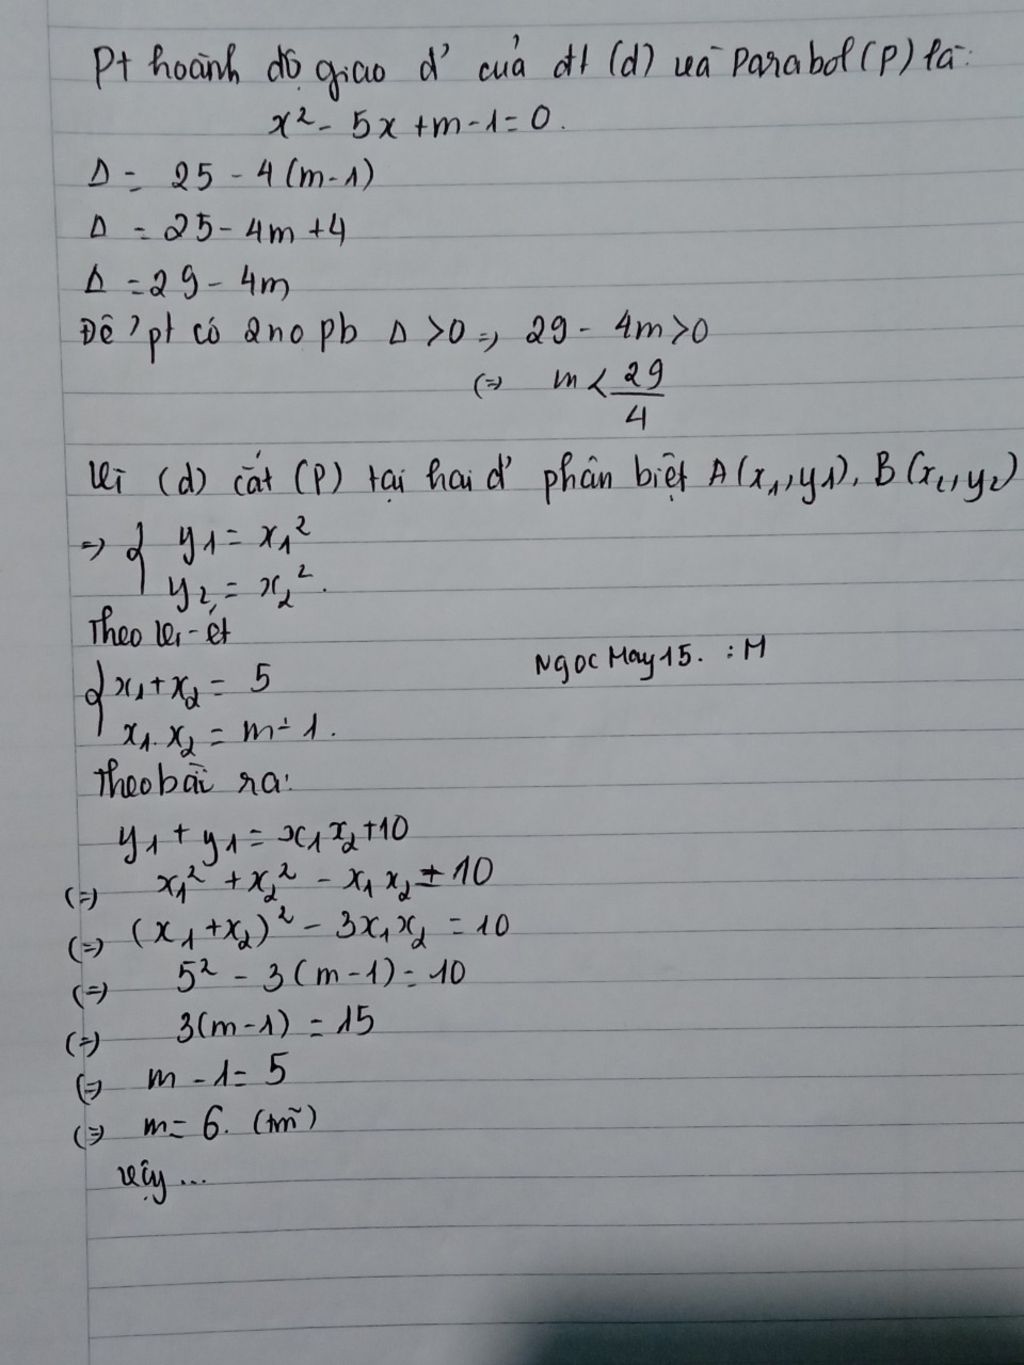 Pt hoành độ giao đ' của đt (d) và Parabol (P) là:
x² - 5x + m - 1 = 0.
Δ = 25 - 4(m-1)
Δ = 25 - 4m + 4
Δ = 29 - 4m
Để pt có 2no pb Δ > 0 => 29 - 4m > 0
(=) m < 29/4
Vì (d) cắt (P) tại hai đ' phân biệt A(x₁,y1), B(x₂,y₂)
=> { y1 = x₁²
y₂ = x₂².
Theo Vi-ét
{ x₁ + x₂ = 5
x₁. x₂ = m - 1.
Ngoc May 15. :M
Theo bài ra:
y₁ + y₁ = x₁x₂ + 10
(=) x₁² + x₂² - x₁x₂ = 10
(=) (x₁ + x₂)² - 3x₁x₂ = 10
(=) 5² - 3(m-1) = 10
(=) 3(m-1) = 15
(=) m - 1 = 5
(=) m = 6. (tm)
Vậy ...